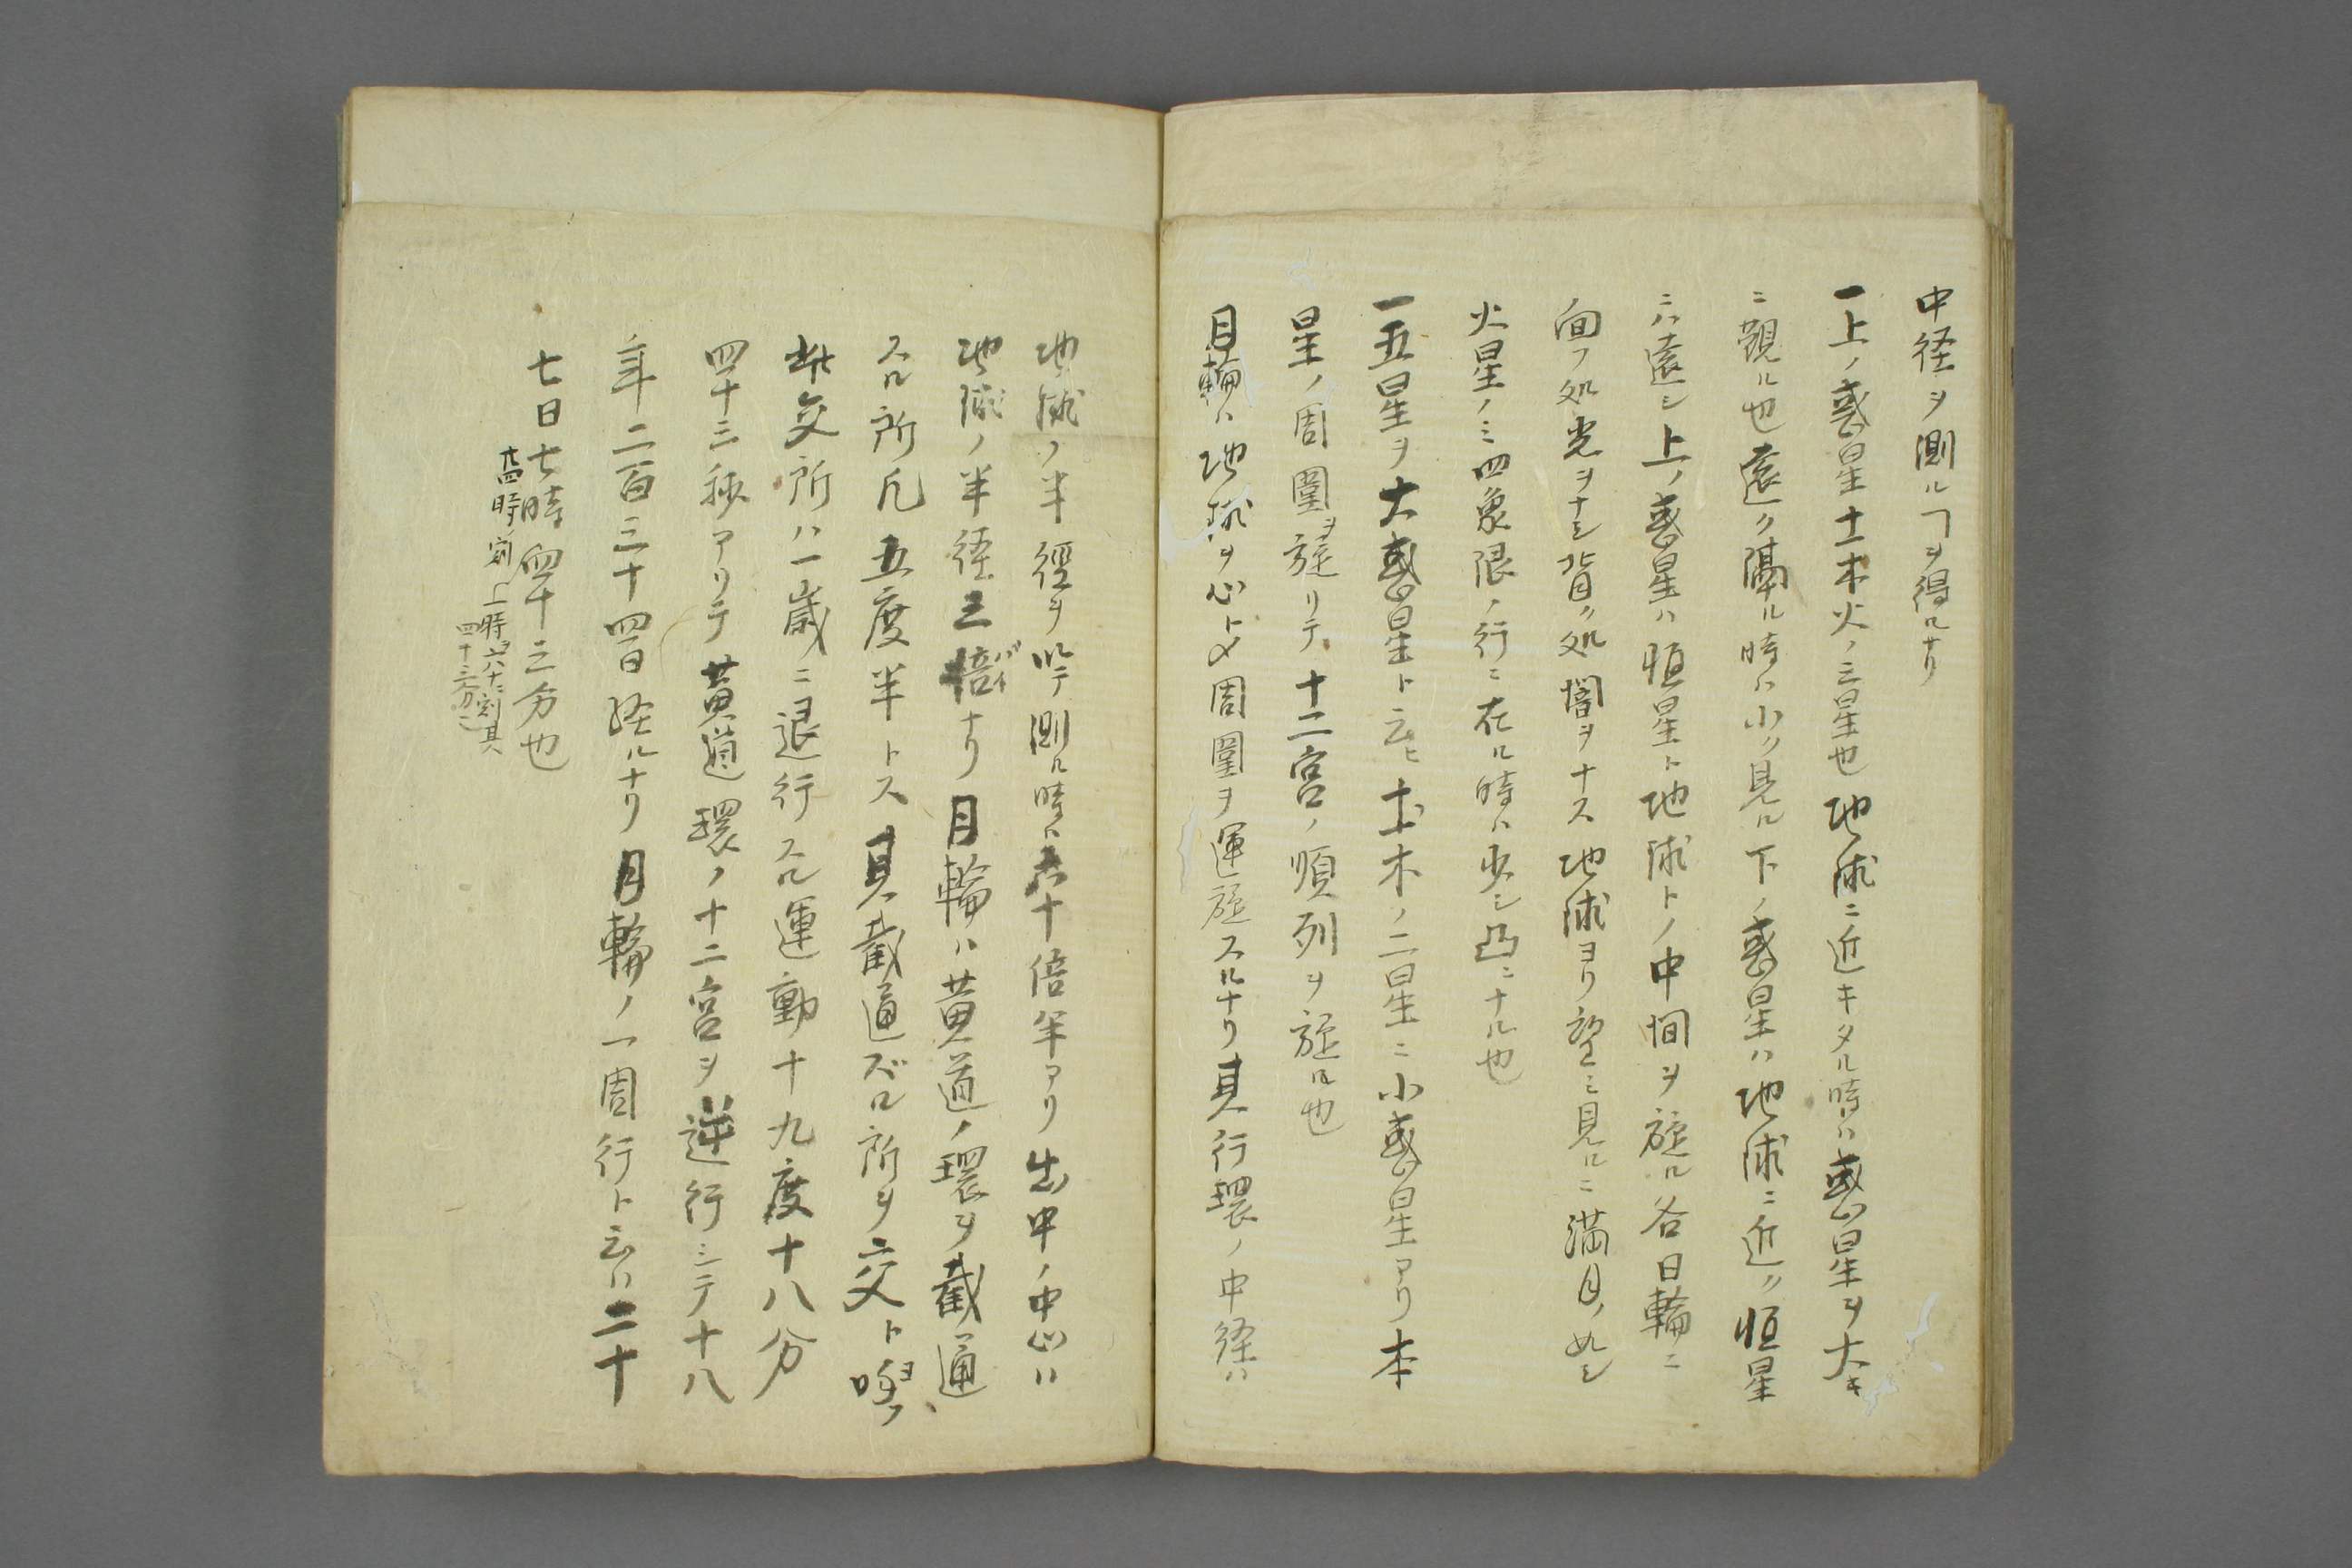 中径ヲ測ルヿヲ得ルナリ
一上ノ惑星土木火ノ三星也地球ニ近キタル時ハ惑星ヲ大キ
ニ観ル也遠ク隔ル時ハ小ク見ル下ノ惑星ハ地球ニ近ク恒星
ニハ遠シ上ノ惑星ハ恒星ト地球トノ中間ヲ旋ル各日輪ニ
向フ処光ヲナシ背ク処闇ヲナス地球ヨリ望ミ見ルニ満月ノ如シ
火星ノミ四象限ノ行ニ在ル時ハ少シ凸ニナル也
一五星ヲ大惑星ト云ヒ土木ノ二星ニ小惑星アリ本
星ノ周圍ヲ旋リテ十二宮ノ順列ヲ旋ル也
月輪ハ地球ヲ心トメ周圍ヲ運旋スルナリ其行環ノ中径ハ
地球ノ半徑ヲ以テ測ル時ハ六十倍半アリ出中ノ中心ハ
地球ノ半径三倍バイナリ月輪ハ黄道ノ環ヲ截通
スル所凡五度半トス其截通ズル所ヲ交ト喚ヨフ
此交所ハ一歳ニ退行スル運動十九度十八分
四十三秒アリテ黄道環ノ十二宮ヲ逆行シテ十八
年二百三十四日経ルナリ月輪ノ一周行ト云ハ二十
七日七時四十三分也
廿四時ノ刻
上時ヲ六十ニ刻其
四十三分也